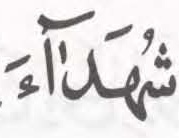 شُهَدَآءَ